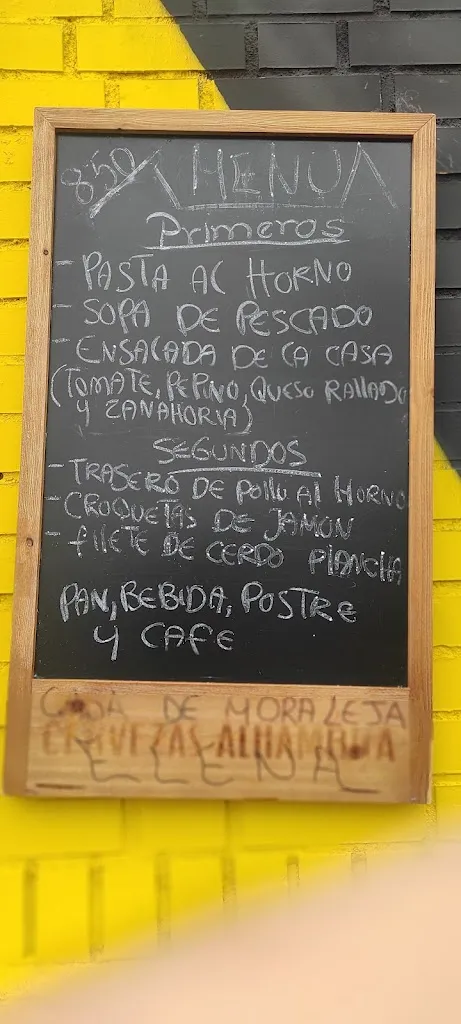 8.50 MENU
Primeros
- PASTA AL HORNO
- SOPA DE PESCADO
- ENSALADA DE LA CASA
(TOMATE, PEPINO, QUESO RALLADO
Y ZANAHORIA)
SEGUNDOS
- TRASERO DE POLLO AL HORNO
- CROQUETAS DE JAMON
- FILETE DE CERDO PLANCHA
PAN, BEBIDA, POSTRE
Y CAFE
DE MORALEJA
CERVEZAS ALHAMBRA
ELENA